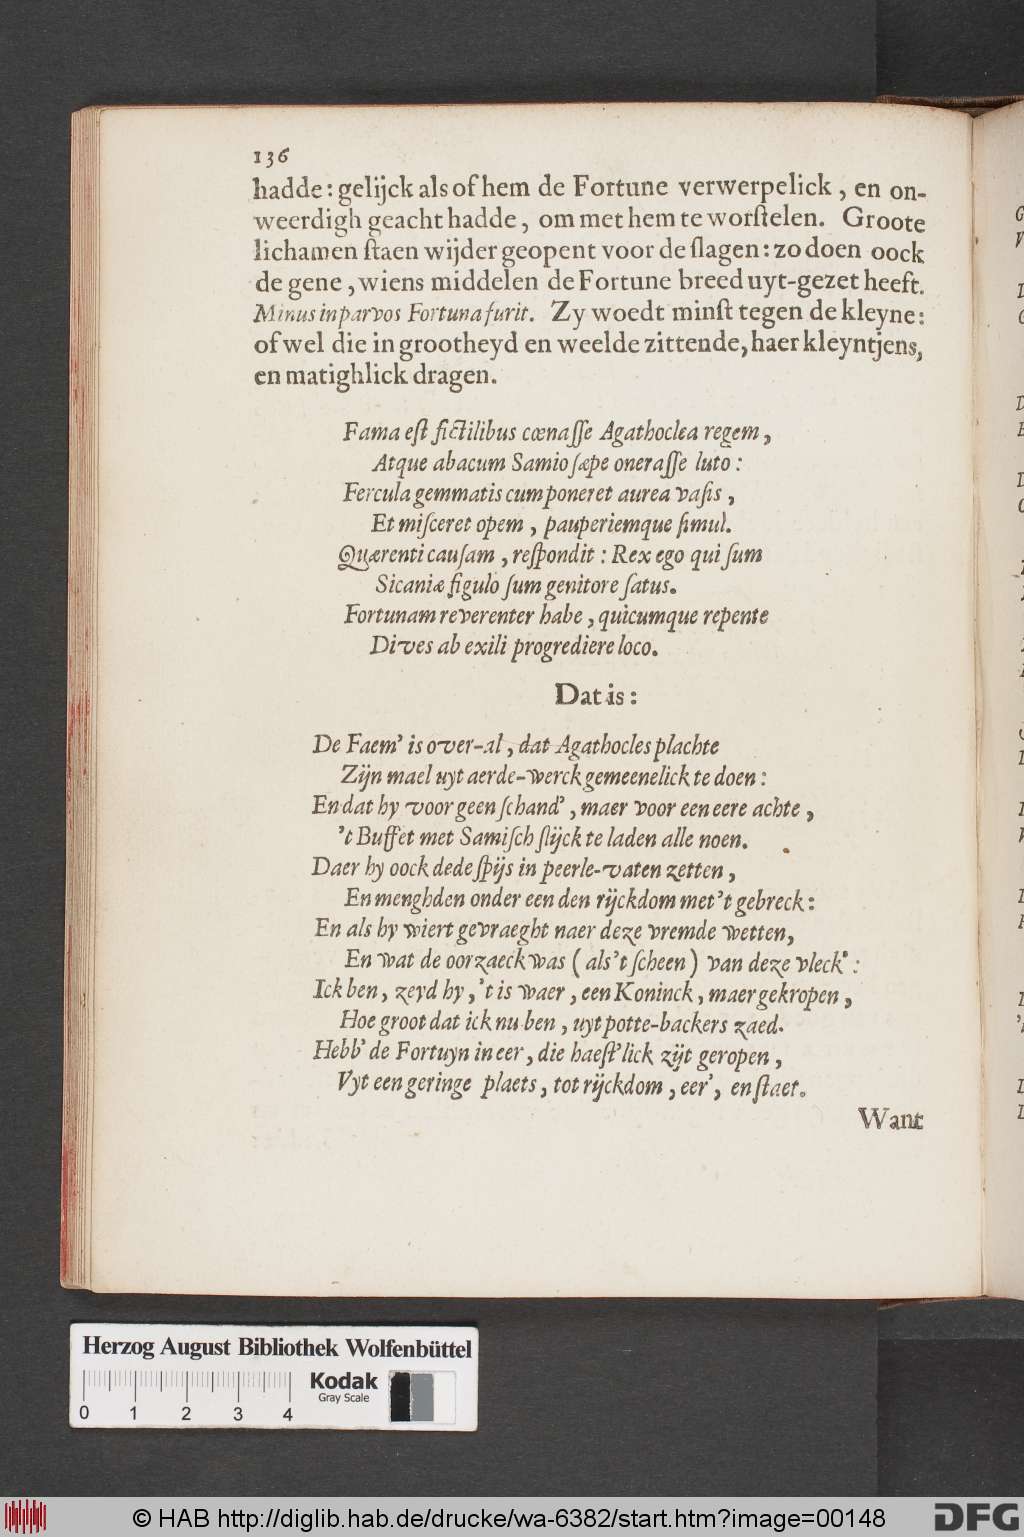 136
hadde: gelijck als of hem de Fortune verwerpelick, en on-
weerdigh geacht hadde, om met hem te worſtelen. Groote
lichamen ſtaen wijder geopent voor de ſlagen: zo doen oock
de gene, wiens middelen de Fortune breed uyt-gezet heeft.
Minus in parvos Fortuna furit. Zy woedt minſt tegen de kleyne:
of wel die in grootheyd en weelde zittende, haer kleyntjens,
en matighlick dragen.
Fama eſt fictilibus cœnaſſe Agathoclea regem,
Atque abacum Samio ſæpe oneraſſe luto:
Fercula gemmatis cum poneret aurea vaſis,
Et miſceret opem, pauperiemque ſimul.
Quærenti cauſam, reſpondit: Rex ego qui ſum
Sicaniæ figulo ſum genitore ſatus.
Fortunam reverenter habe, quicumque repente
Dives ab exili progrediere loco.
Dat is:
De Faem' is over-al, dat Agathocles plachte
Zijn mael uyt aerde-werck gemeenelick te doen:
En dat hy voor geen ſchand', maer voor een eere achte,
't Buffet met Samiſch ſlijck te laden alle noen.
Daer hy oock dede ſpijs in peerle-vaten zetten,
En menghden onder een den rijckdom met 't gebreck:
En als hy wiert gevraeght naer deze vremde wetten,
En wat de oorzaeck was (als 't ſcheen) van deze vleck':
Ick ben, zeyd hy, 't is waer, een Koninck, maer gekropen,
Hoe groot dat ick nu ben, uyt potte-backers zaed.
Hebb' de Fortuyn in eer, die haeſt'lick zijt geropen,
Vyt een geringe plaets, tot rijckdom, eer', en ſtaet.
Want
Herzog August Bibliothek Wolfenbüttel
Kodak
Gray Scale
0 1 2 3 4
© HAB http://diglib.hab.de/drucke/wa-6382/start.htm?image=00148
DFG